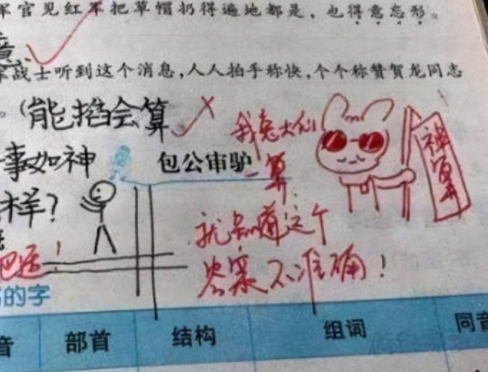 军官见红军把草帽扔得遍地都是，也得意忘形。
战士听到这个消息，人人拍手称快，个个称赞贺龙同志
。（能掐会算
事如神
包公审驴
样？
我兔大仙
一算
就知道这个
答案不准确！
神算
吧话！
的字
音 部首 结构 组词 同音